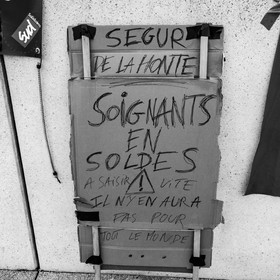 Sud
SEGUR
DE LA HONTE
SOIGNANTS
EN
SOLDES
A SAISIR ! VITE
IL N'Y EN AURA
PAS POUR
TOUT LE MONDE
...